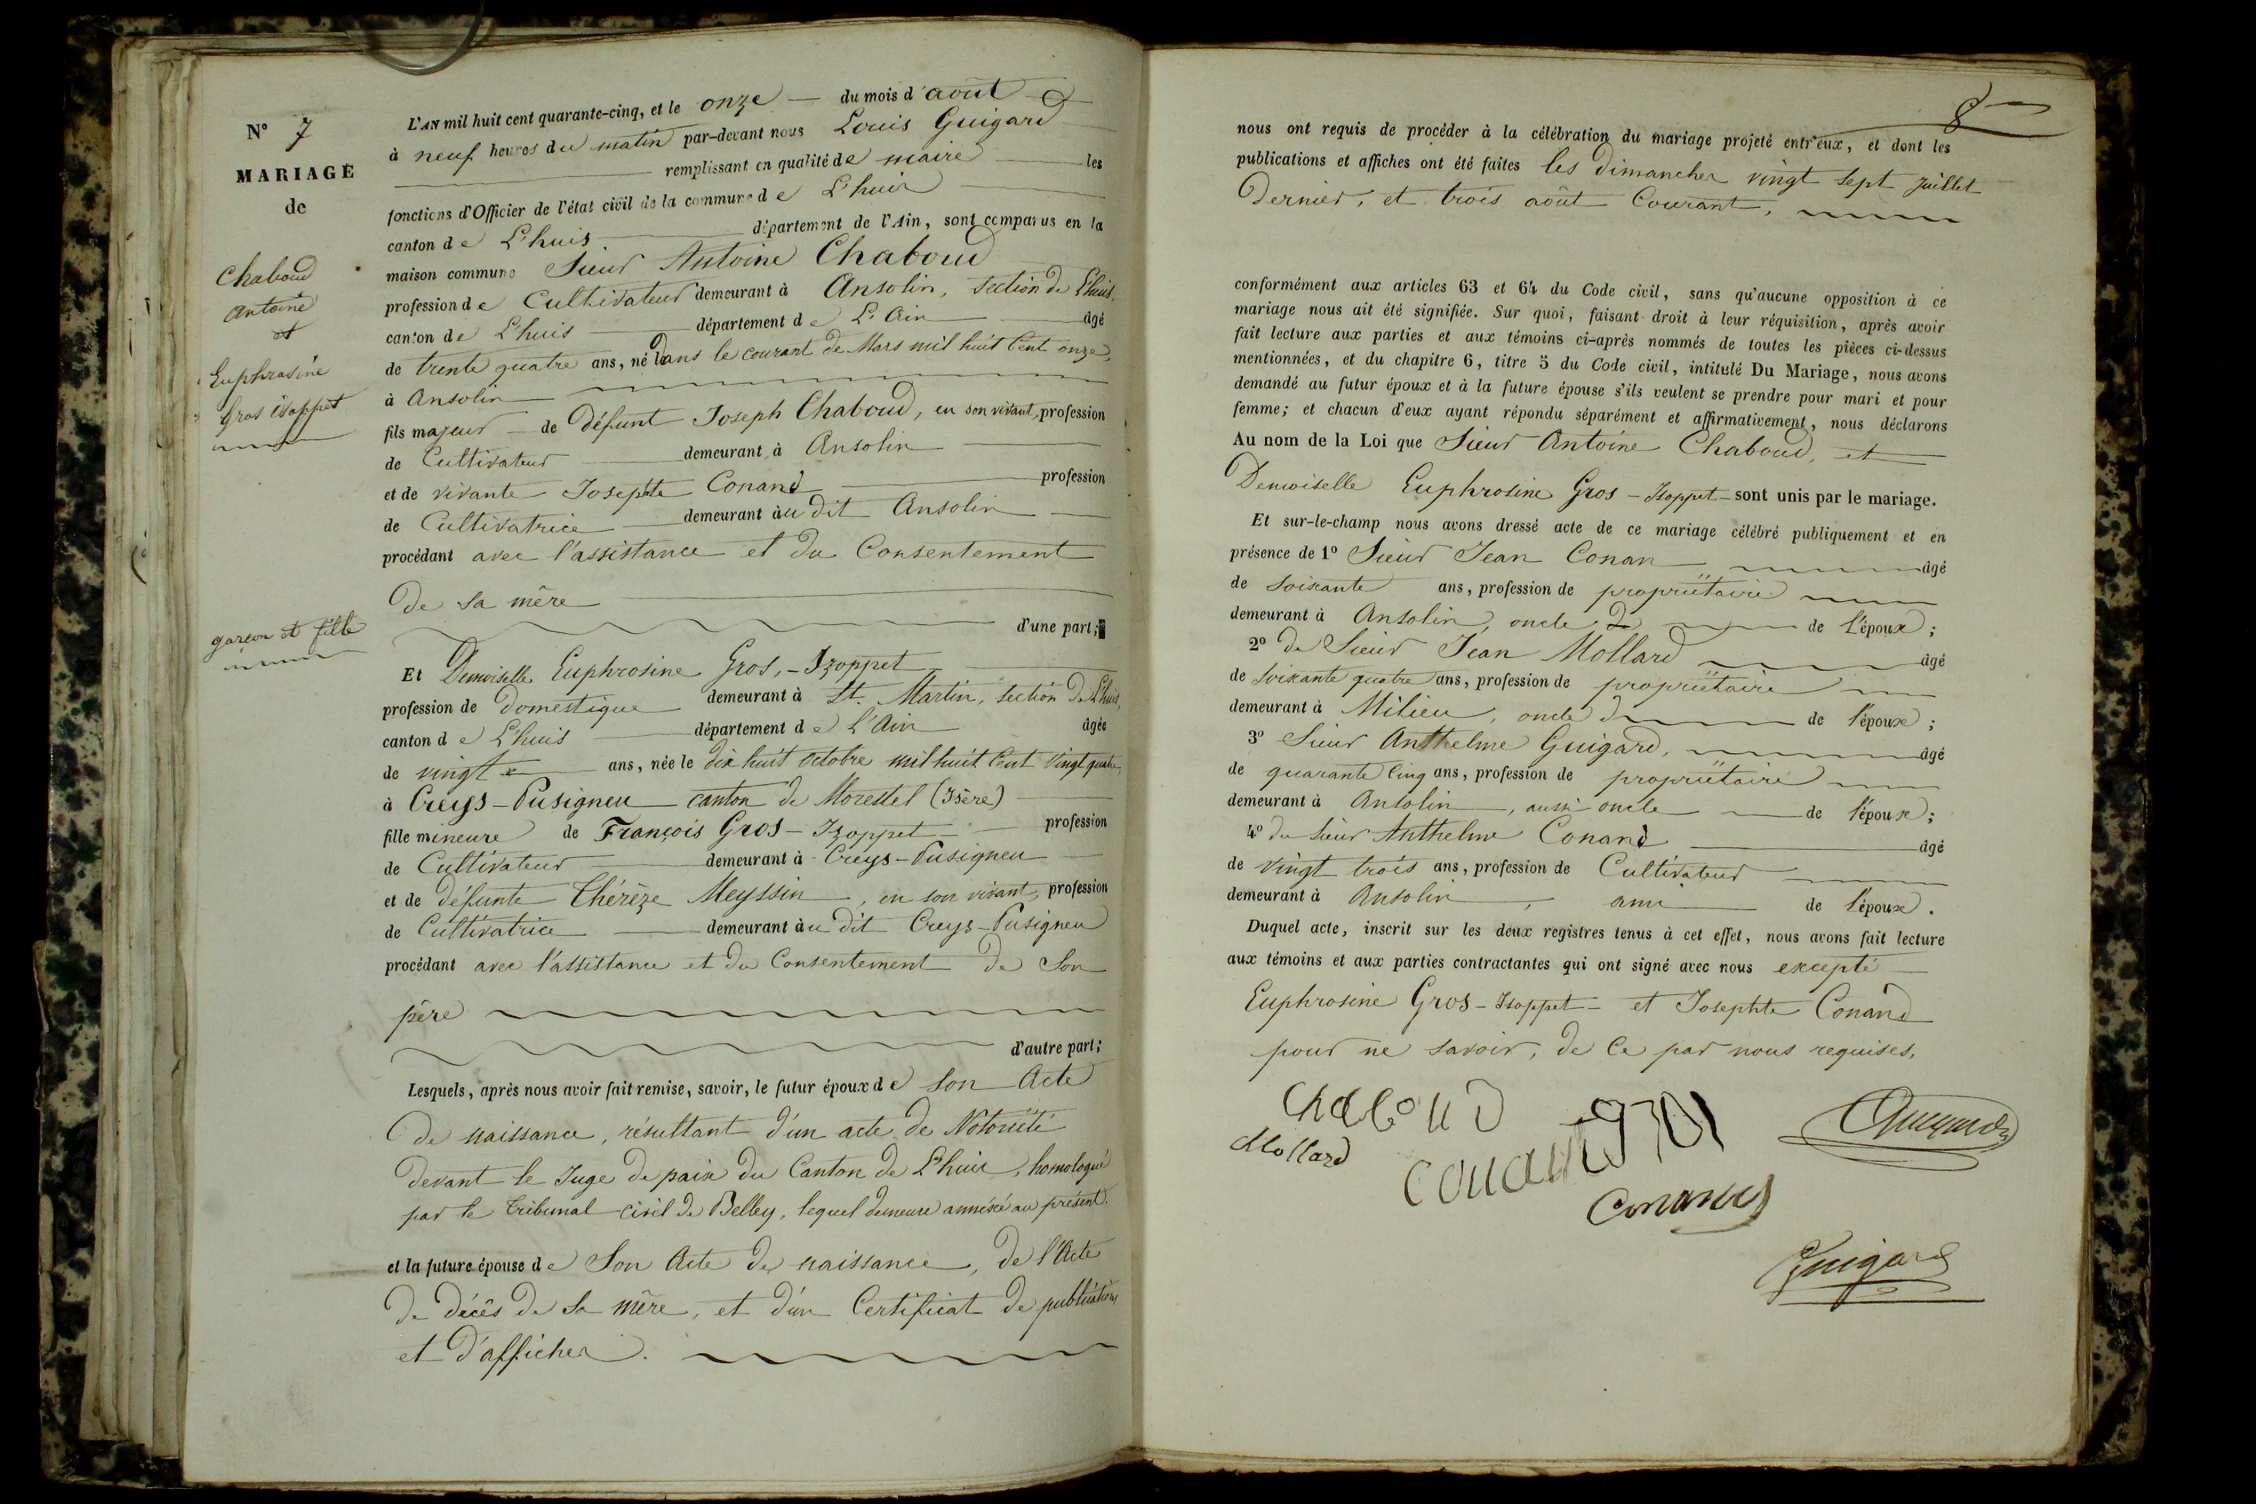 N° 7
MARIAGE
de
Chaboud
Antoine
et
Euphrosine
Gros isoppet
garçon et fille
L'AN mil huit cent quarante-cinq, et le onze du mois d'août
à neuf heures du matin par-devant nous Louis Guigard
remplissant en qualité de maire les
fonctions d'Officier de l'état civil de la commune de L'huis
canton de L'huis département de l'Ain, sont comparus en la
maison commune Sieur Antoine Chaboud
profession de Cultivateur demeurant à Ansolin, section de Lhuis,
canton de L'huis département de L'Ain âgé
de trente quatre ans, né dans le courant de Mars mil huit cent onze,
à Ansolin
fils majeur de défunt Joseph Chaboud, en son vivant, profession
de Cultivateur demeurant à Ansolin
et de vivante Josephte Conand profession
de Cultivatrice demeurant àu dit Ansolin
procédant avec l'assistance et du Consentement
de sa mère
d'une part;
Et Demoiselle Euphrosine Gros, - Izoppet
profession de domestique demeurant à St. Martin, section de Lhuis,
canton de L'huis département de l'Ain âgée
de vingt ans, née le dix huit octobre mil huit cent vingt quatre,
à Creys-Pusigneu canton de Morestel (Isère)
fille mineure de François Gros-Izoppet profession
de Cultivateur demeurant à Creys-Pusigneu
et de défunte Thérèze Meyssin, en son vivant, profession
de Cultivatrice demeurant àu dit Creys-Pusigneu
procédant avec l'assistance et du Consentement de son
père
d'autre part;
Lesquels, après nous avoir fait remise, savoir, le futur époux de son Acte
De naissance, résultant d'un acte de Notoriété
devant le Juge de paix du Canton de L'huis, homologué
par le Tribunal civil de Belley, lequel demeure annéxé au présent.
et la future épouse de Son Acte de naissance, de l'Acte
de décès de sa mère, et d'un Certificat de publications
et d'affiches.
8
nous ont requis de procéder à la célébration du mariage projeté entr'eux, et dont les
publications et affiches ont été faites les dimanches vingt sept juillet
Dernier, et trois août Courant,
conformément aux articles 63 et 64 du Code civil, sans qu'aucune opposition à ce
mariage nous ait été signifiée. Sur quoi, faisant droit à leur réquisition, après avoir
fait lecture aux parties et aux témoins ci-après nommés de toutes les pièces ci-dessus
mentionnées, et du chapitre 6, titre 5 du Code civil, intitulé Du Mariage, nous avons
demandé au futur époux et à la future épouse s'ils veulent se prendre pour mari et pour
femme; et chacun d'eux ayant répondu séparément et affirmativement, nous déclarons
Au nom de la Loi que Sieur Antoine Chaboud, et
Demoiselle Euphrosine Gros - Isoppet - sont unis par le mariage.
Et sur-le-champ nous avons dressé acte de ce mariage célébré publiquement et en
présence de 1° Sieur Jean Conan âgé
de soixante ans, profession de propriétaire
demeurant à Ansolin, oncle de l'époux;
2° de Sieur Jean Mollard âgé
de soixante quatre ans, profession de propriétaire
demeurant à Milieu, oncle de l'époux;
3° Sieur Anthelme Guigard, âgé
de quarante cinq ans, profession de propriétaire
demeurant à Ansolin, aussi oncle de l'époux;
4° du Sieur Anthelme Conand âgé
de vingt trois ans, profession de Cultivateur
demeurant à Ansolin, ami de l'époux.
Duquel acte, inscrit sur les deux registres tenus à cet effet, nous avons fait lecture
aux témoins et aux parties contractantes qui ont signé avec nous excepté
Euphrosine Gros-Isoppet - et Josephte Conand
pour ne savoir, de ce par nous requises,
Chaboud
Mollard
Conand
Guigard